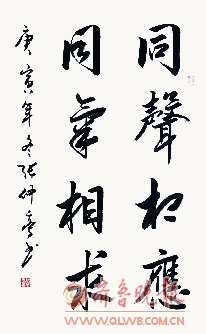 同聲相應
同氣相求
庚寅年冬張仲亭書
齐鲁晚报
WWW.QLWB.COM.CN